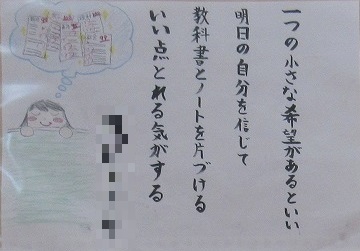 一つの小さな希望があるといい
明日の自分を信じて
教科書とノートを片づける
いい点とれる気がする